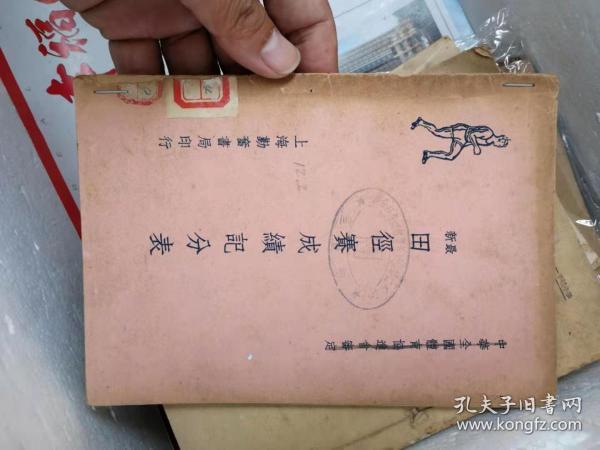 中華全國體育協進會審定
最新
田徑賽成績記分表
上海勤奮書局印行
孔夫子旧书网
www.kongfz.com